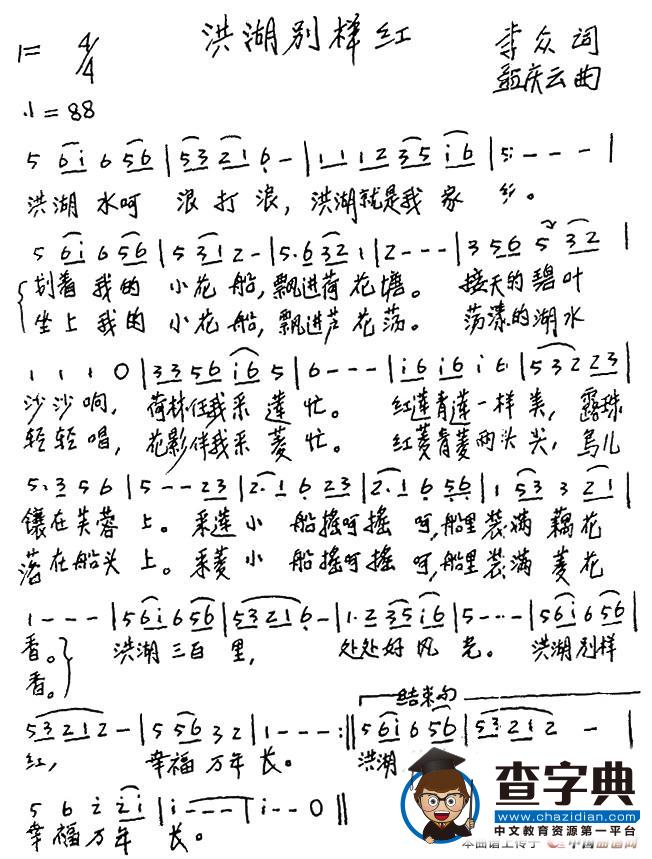 洪湖别样红
1= 4/4
李众词
庆云曲
♩=88
5 6i 6 56 | 53 21 6 - | 1 1 1 2 35 i6 | 5 - - - |
洪湖 水呵 浪打浪，洪湖就是我家乡。
5 6i 6 56 | 5 31 2 - | 5·6 32 1 | 2 - - - | 3 56 5 32 |
划着我的小花船，飘进荷花塘。接天的碧叶
坐上我的小花船，飘进芦花荡。荡漾的湖水
1 1 1 0 | 33 56 i6 5 | 6 - - - | i6 i6 i 6 | 53 2 23 |
沙沙响，荷林任我采莲忙。红莲青莲一样美，露珠
轻轻唱，花影伴我采菱忙。红菱青菱两头尖，鸟儿
5·3 5 6 | 5 - - 23 | 2·1 6 23 | 2·1 6 56 | 1 53 3 21 |
镶在芙蓉上。采莲小船摇呵摇呵，船里装满藕花
落在船头上。采菱小船摇呵摇呵，船里装满菱花
1 - - - | 56i 6 56 | 5321 6 - | 1·2 35 i6 | 5 - - - | 56i 6 56 |
香。洪湖三百里，处处好风光。洪湖别样
香。
结束句
53 21 2 - | 5 56 3 2 | 1 - - - :|| 5 6i 6 56 | 53 21 2 - |
红，幸福万年长。洪湖
5 6 2 2i | i - - - | i - - 0 ||
幸福万年长。
查字典
www.chazidian.com
中文教育资源第一平台
本曲谱上传于 中国曲谱网